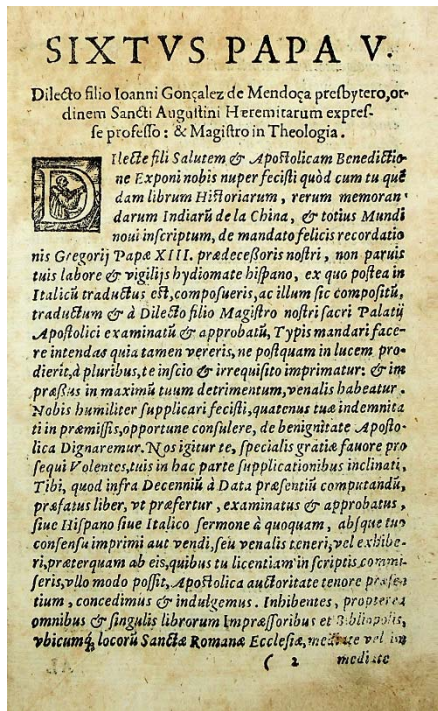 SIXTVS PAPA V.
Dilecto filio Ioanni Gonçalez de Mendoça presbytero, or-
dinem Sancti Augustini Hæremitarum expres-
se professo: & Magistro in Theologia.
DIlecte fili Salutem & Apostolicam Benedictio
ne Exponi nobis nuper fecisti quòd cum tu quē
dam librum Historiarum, rerum memoran
darum Indiarū de la China, & totius Mundi
noui inscriptum, de mandato felicis recordatio
nis Gregorij Papæ XIII. prædecessoris nostri, non paruis
tuis labore & vigilijs hydiomate hispano, ex quo postea in
Italicū traductus est, composueris, ac illum sic compositū,
traductum & à Dilecto filio Magistro nostri sacri Palatij
Apostolici examinatū & approbatū, Typis mandari face-
re intendas quia tamen vereris, ne postquam in lucem pro-
dierit, à pluribus, te inscio & irrequisito imprimatur: & im
præssus in maximū tuum detrimentum, venalis habeatur.
Nobis humiliter supplicari fecisti, quatenus tuæ indemnita
ti in præmissis, opportune consulere, de benignitate Aposto-
lica Dignaremur. Nos igitur te, specialis gratiæ fauore pro
sequi Volentes, tuis in hac parte supplicationibus inclinati,
Tibi, quod infra Decenniū à Data præsentiū computandū,
præfatus liber, vt præfertur, examinatus & approbatus,
siue Hispano siue Italico sermone à quoquam, absque tuo
consensu imprimi aut vendi, seu venalis teneri, vel exhibe-
ri, præterquam ab eis, quibus tu licentiam in scriptis commi-
seris, vllo modo possit, Apostolica auctoritate tenore præsen
tium, concedimus & indulgemus. Inhibentes, propterea
omnibus & singulis librorum Impræssoribus et Bibliopolis,
vbicumq́; locorū Sanctæ Romanæ Ecclesiæ, mediate vel im
( 2 mediate